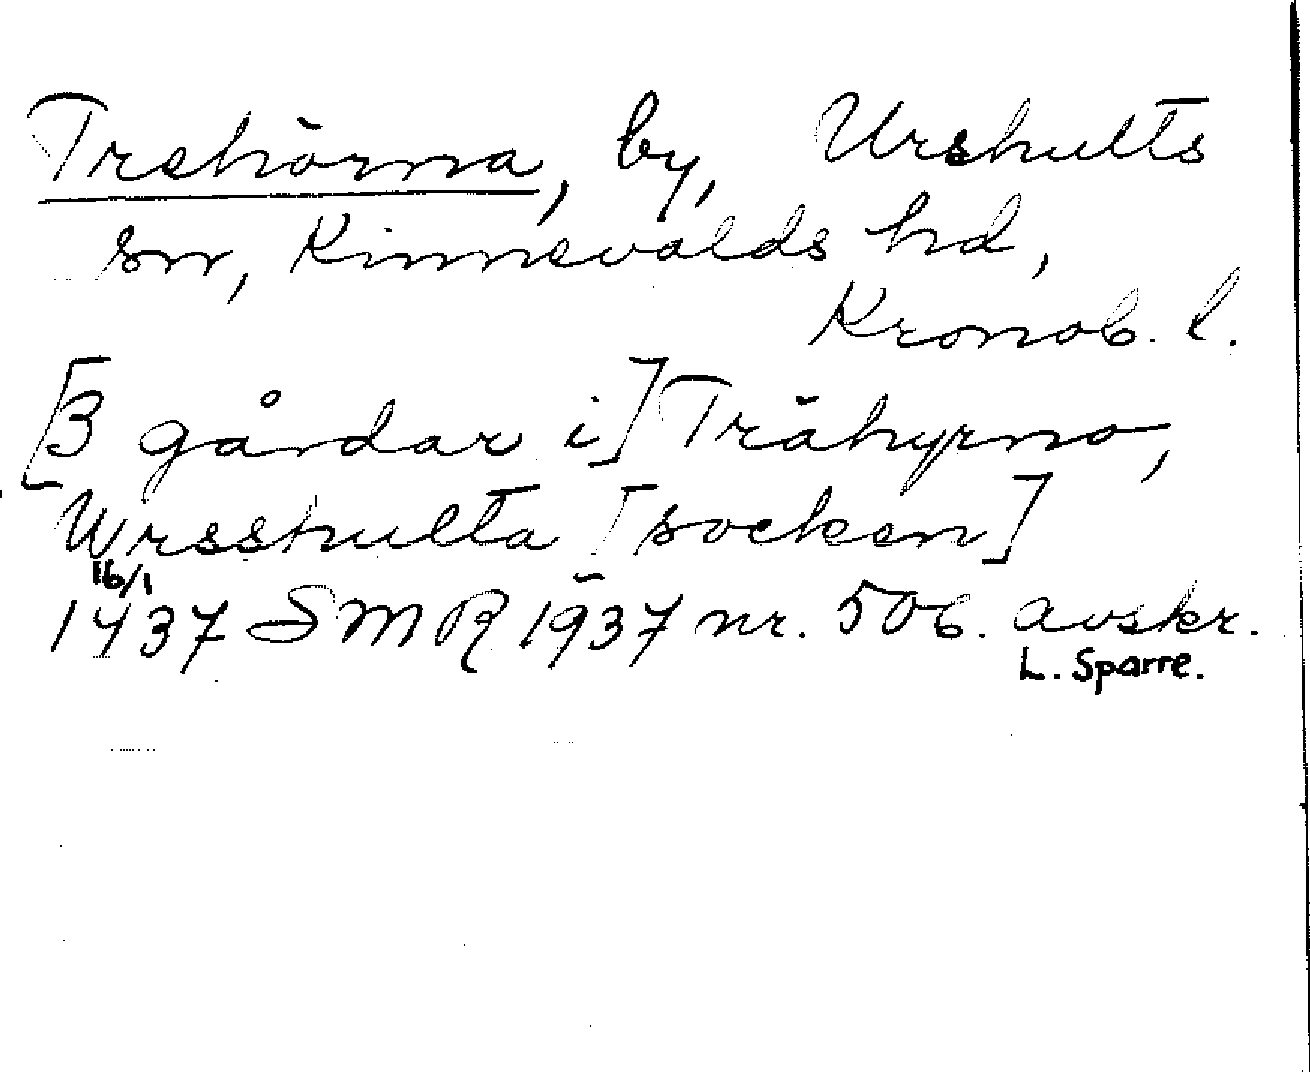 Trehörna, by, Urshults
sn, Kinnevalds hd,
Kronob. l.
[3 gårdar i] Trähyrno,
Wrsshulta [socken]
16/1
1437 SMR 1937 nr. 506. avskr.
L. Sparre.